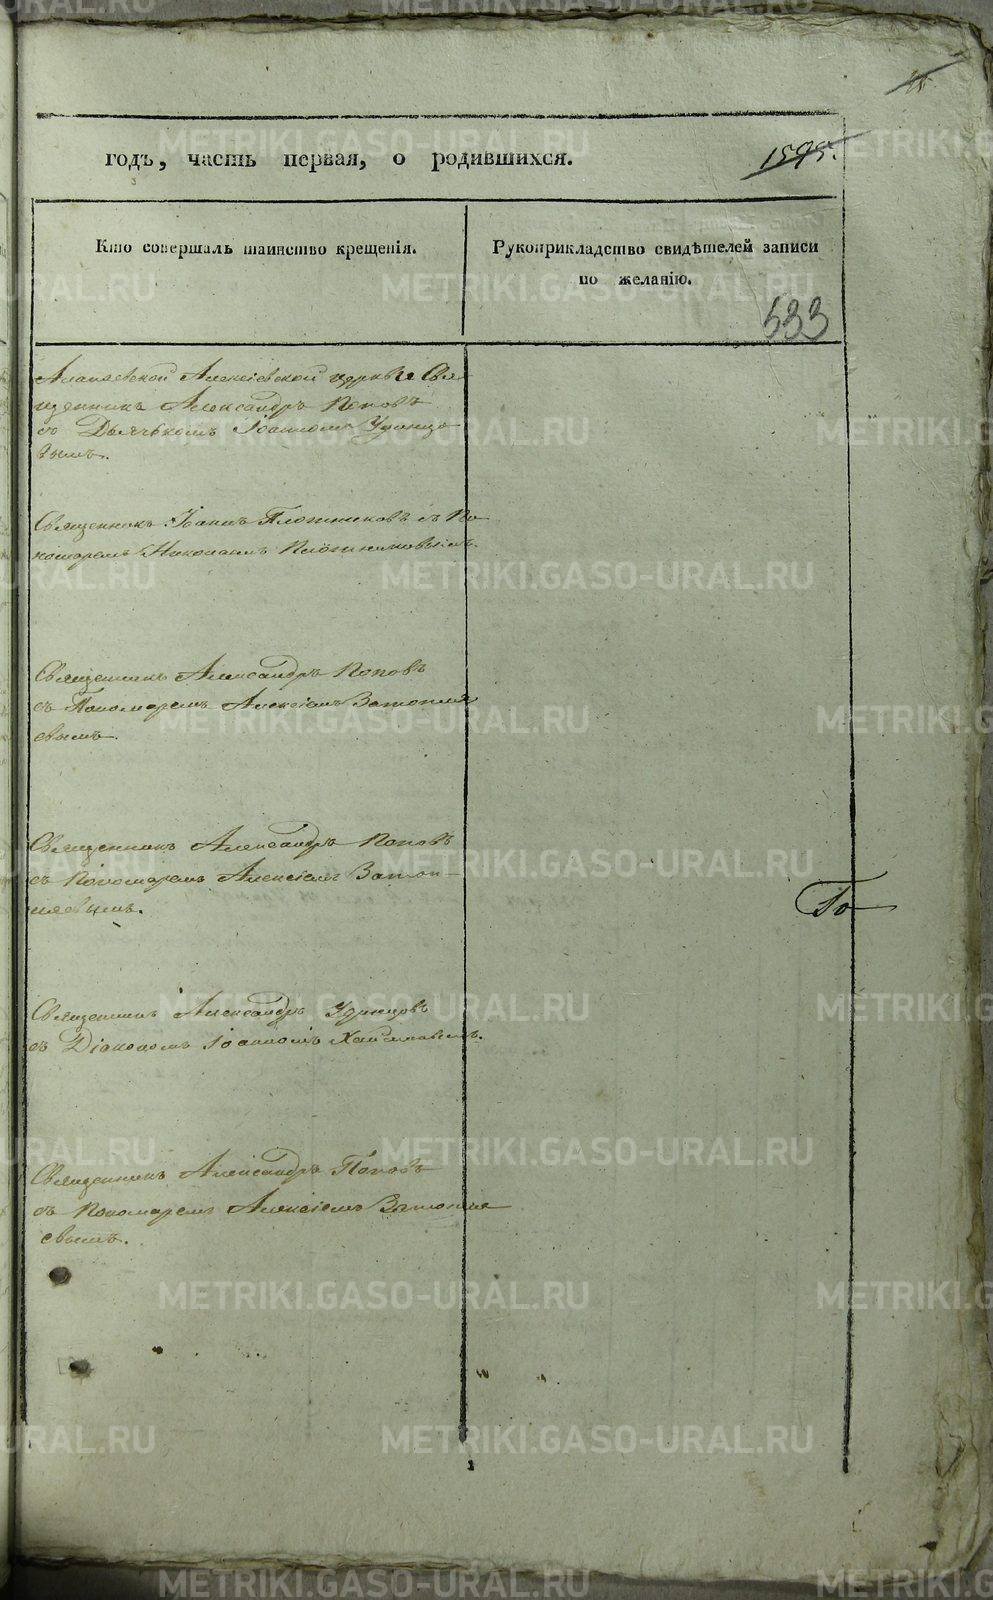 годъ, часть первая, о родившихся.
1595.
Кто совершалъ таинство крещенія.
Рукоприкладство свидѣтелей записи
по желанію.
533
Алапаевской Алексіевской церкви Свя
щенникъ Александръ Поповъ
съ Дьячькомъ Іоанномъ Удинцо
вымъ.
Священникъ Іоаннъ Плотниковъ съ По
номаремъ Николаемъ Плотниковымъ.
Священникъ Александръ Поповъ
съ Пономаремъ Алексіемъ Затопля
евымъ.
Священникъ Александръ Поповъ
съ Пономаремъ Алексіемъ Затоп-
ляевымъ.
Го
Священникъ Александръ Удинцовъ
съ Діакономъ Іоанномъ
Священникъ Александръ Поповъ
съ Пономаремъ Алексіемъ Затопля
евымъ.
METRIKI.GASO-URAL.RU